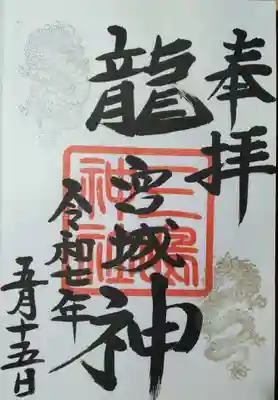 奉拝
龍宮城神
三島神社
令和七年
五月十五日